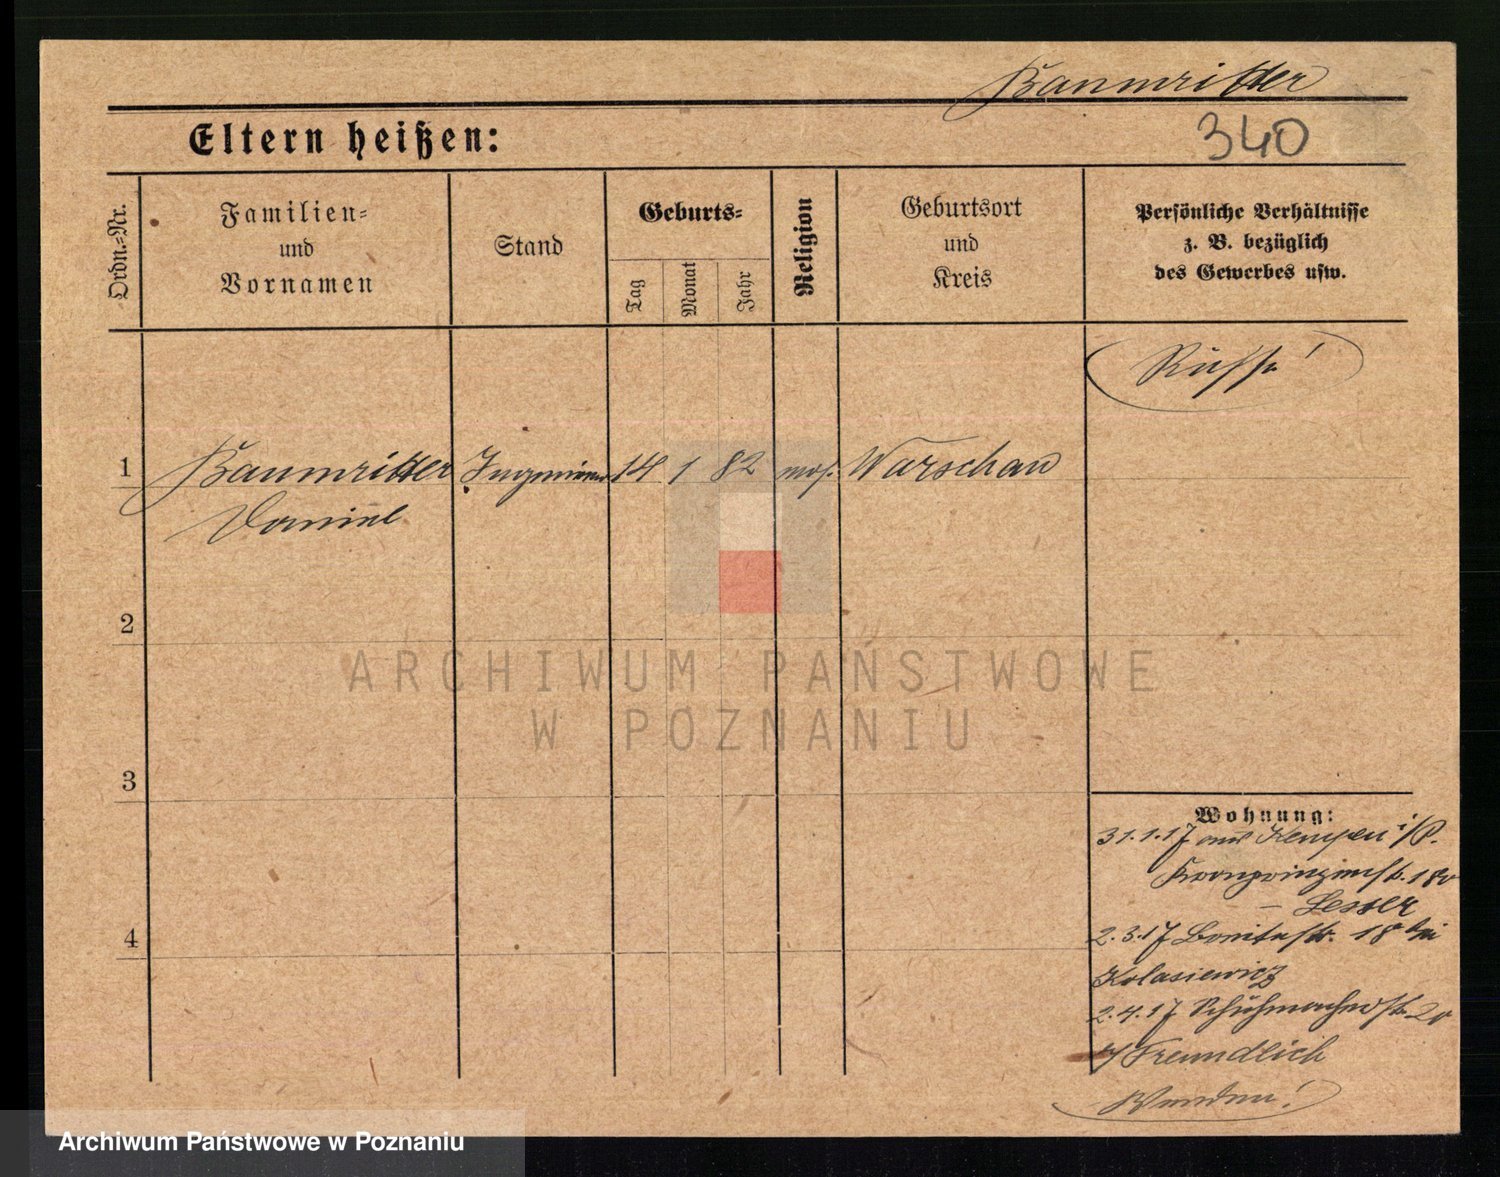 Baumritter
340
Eltern heißen:
Ordn.=Nr.
Familien=
und
Vornamen
Stand
Geburts=
Tag
Monat
Jahr
Religion
Geburtsort
und
Kreis
Persönliche Verhältnisse
z. B. bezüglich
des Gewerbes usw.
Russe!
1
Baumritter Ingenieur 14 1 82 mos. Warschau
Daniel
2
ARCHIWUM PAŃSTWOWE
W POZNANIU
3
4
Wohnung:
31.1.17 aus Kempen i/P.
Kronprinzenstr.
– Lesser
2.3.17 18 bei
Kolasiewicz
2.4.17 Schuhmacherstr. 20
b/ Freundlich
Wenden!
Archiwum Państwowe w Poznaniu